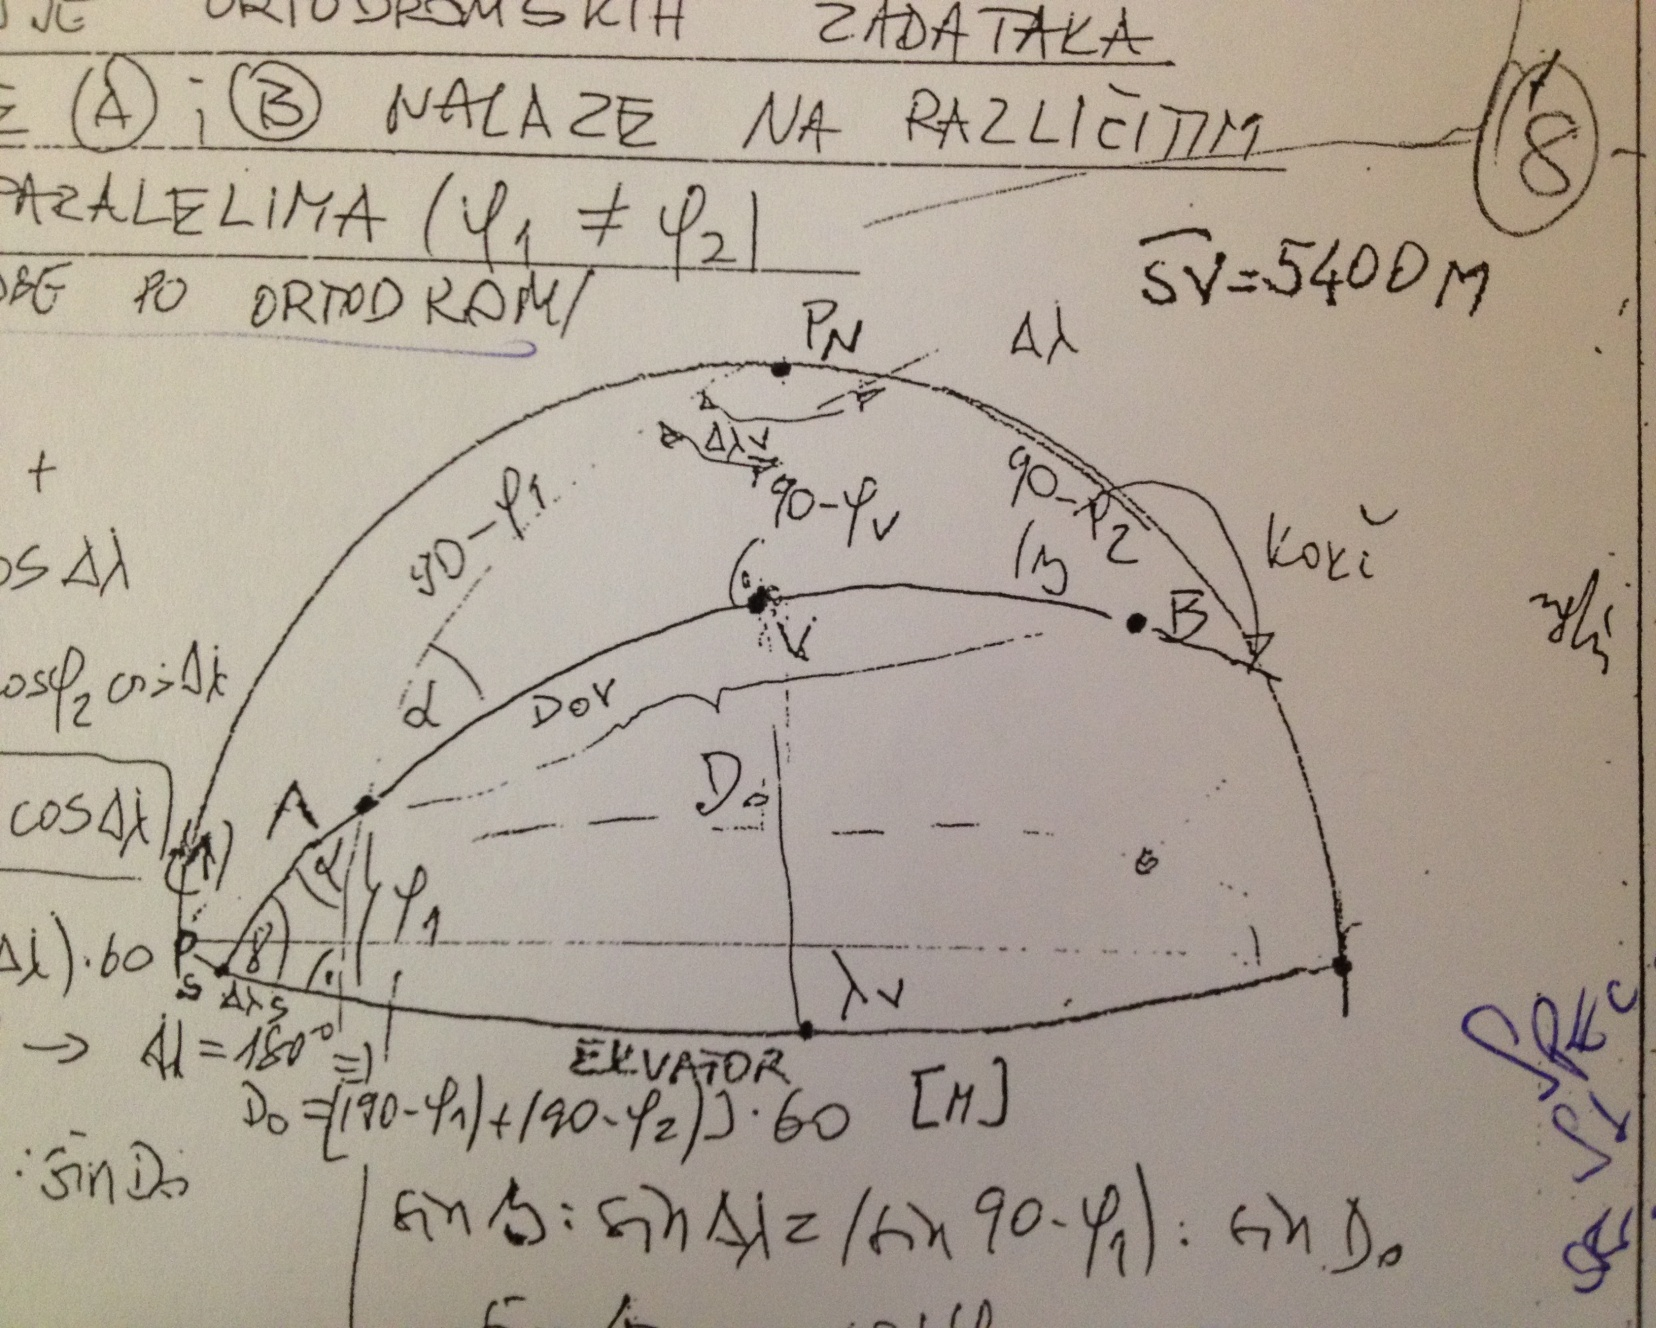 JE ORTODROMSKIH ZADATAKA
E (A) i (B) NALAZE NA RAZLIČITIM
8
PARALELIMA (φ1 ≠ φ2)
OBE PO ORTODROMI
SV = 5400 M
PN
Δλ
Δλv
+
90-φ1
90-φv
90-φ2
KOKI
cos Δλ
β
B
V
cosφ2 cosΔλ
α
Dov
Do
A
cosΔλ
α
φ1
Δλ).60
S
ΔλS
λv
→ Δλ = 180° =>
EKVATOR
Do = [(90-φ1)+(90-φ2)].60 [M]
: sin Do
sin β : sin Δλ = (sin 90-φ1) : sin Do